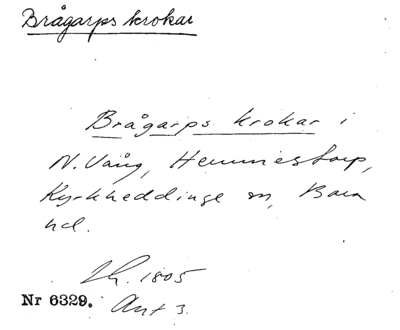 Brågarps krokar
Brågarps krokar i
N. Vång, Hemmestorp,
Kyrkheddinge sn, Bara
hd.
Lh. 1805
Nr 6329. Akt 3.